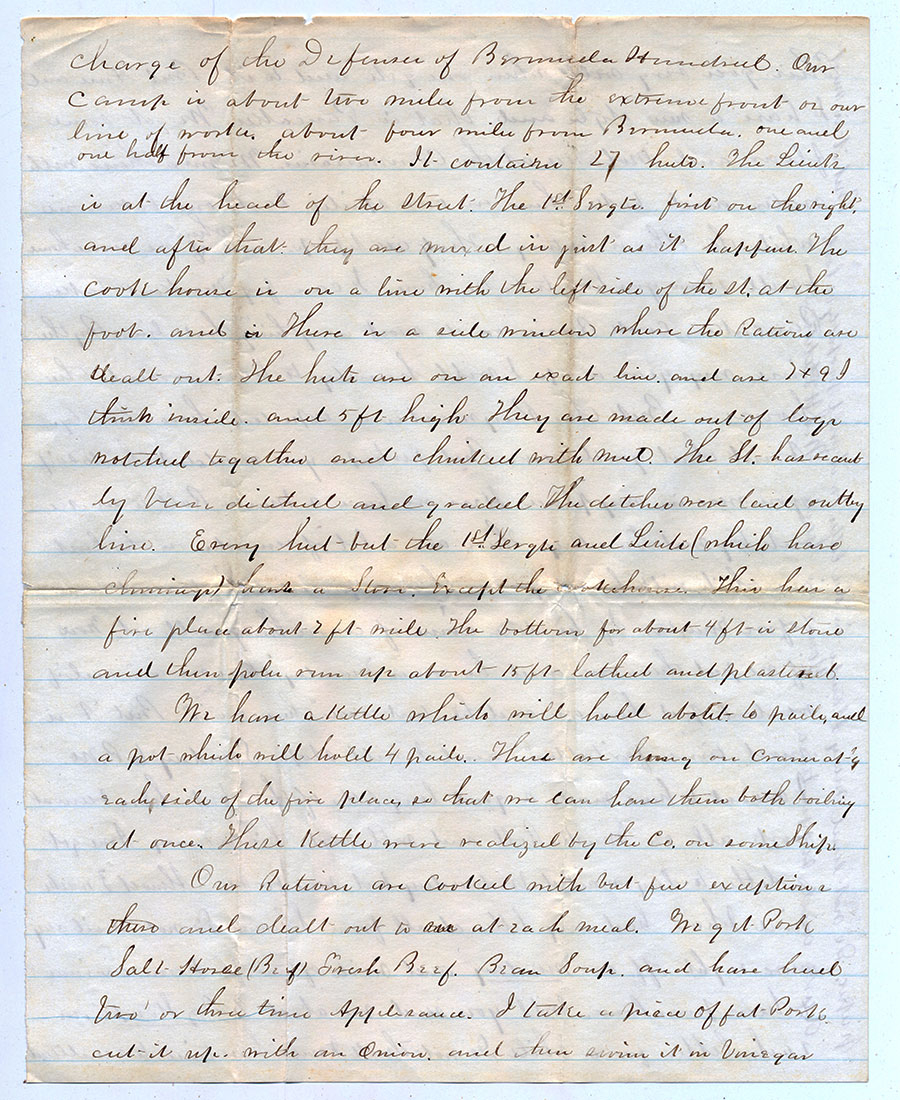 charge of the Defenses of Bermuda Hundred. Our
Camp is about two miles from the extreme front or our
line of works. about four miles from Bermuda. one and
one half from the river. It contains 27 huts. The Lieuts
is at the head of the street. The 1st Sergts. first on the right,
and after that they are mixed in just as it happens. The
Cook house is on a line with the left side of the st. at the
foot. and is There is a side window where the Rations are
dealt out. The huts are on an exact line. and are 7x9 I
think inside. and 5 ft high They are made out of logs
notched togather and chinked with mud. The St. has recent
ly been ditched and graded The ditches were laid out by
line. Every hut but the 1st Sergts and Lieuts (which have
chimneys) has a Stove. Except the cookhouse. This has a
fire place about 7 ft wide. The bottom for about 4 ft is stone
and then poles run up about 15 ft lathed and plastered.
We have a Kettle which will hold about 6 pails, and
a pot which will hold 4 pails. These are hung on cranes at
each side of the fire place, so that we can have them both boiling
at once. These Kettle were realized by the Co. on some Ship.
Our Rations are cooked with but few exceptions
there and dealt out to us at each meal. We get Pork
Salt Horse (Beef) Fresh Beef. Bean Soup. and have had
two or three time Applesauce. I take a piece of fat Pork
cut it up. with an Onion. and then swim it in Vinegar